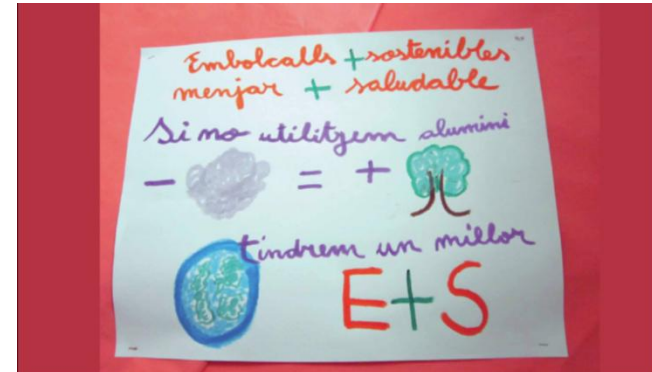 Embolcalls + sostenibles
menjar + saludable
Si no utilitzem alumini
- = +
tindrem un millor
E+S